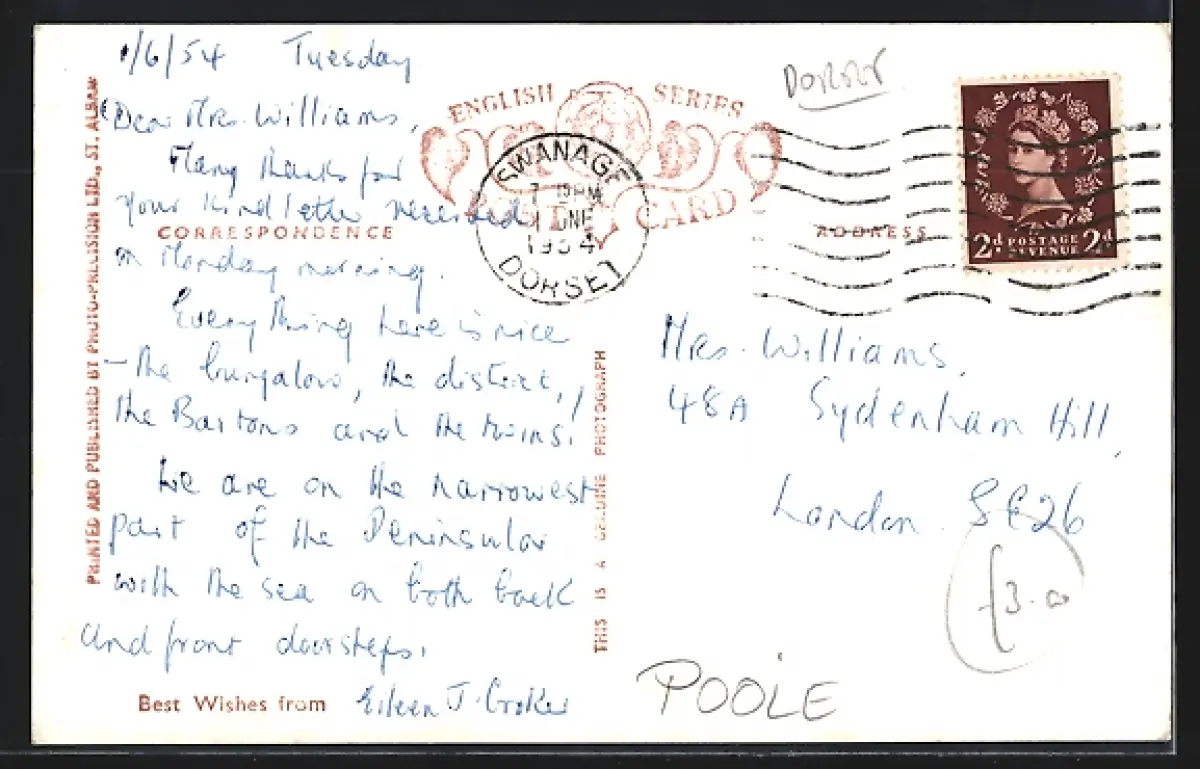 1/6/54 Tuesday
Dear Mrs. Williams,
Many thanks for
your kind letter received
on Monday morning
Everything here is nice
– the bungalow, the district,
the Bartons and the twins!
We are on the narrowest
part of the Peninsular
with the sea on both back
and front doorsteps.
Best Wishes from Eileen J. Croker
CORRESPONDENCE
PRINTED AND PUBLISHED BY PHOTO-PRECISION LTD., ST. ALBANS
ENGLISH SERIES
CARD
SWANAGE
PM
1 JNE
1954
DORSET
THIS IS A COLOUR PHOTOGRAPH
DORSET
ADDRESS
2d POSTAGE 2d
REVENUE
Mrs. Williams,
48A Sydenham Hill,
London. SE26
£3.00
POOLE